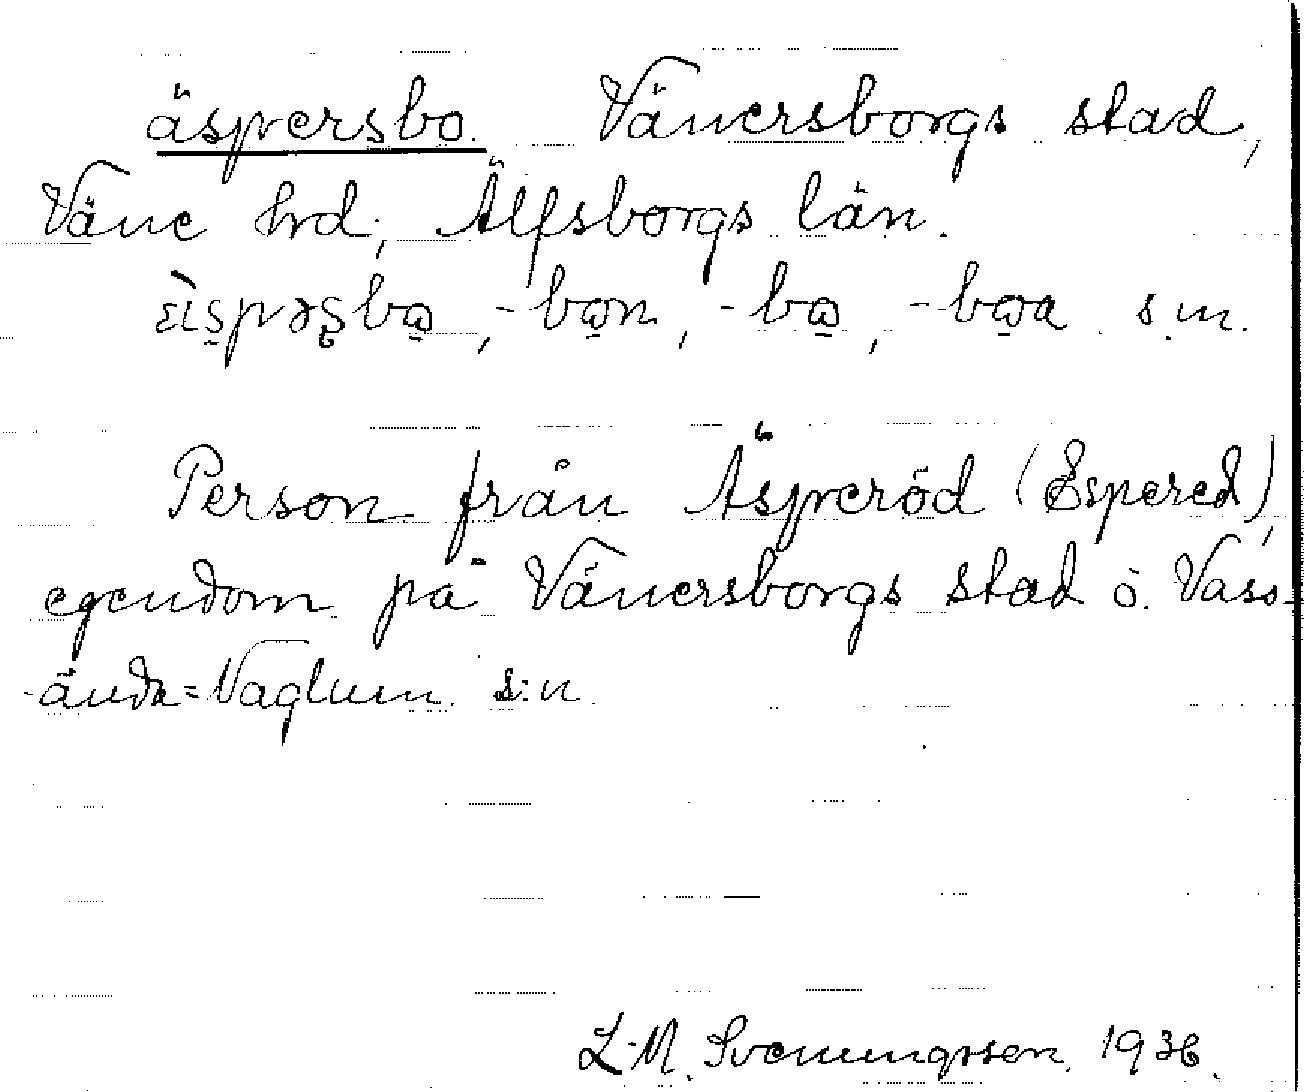 äspersbo. Vänersborgs stad,
Väne hrd, Älfsborgs län.
s.m.
Person från Äsperöd (Espered),
egendom på Vänersborgs stad o. Vass-
ända-Naglum s:n.
L.M. Svenungsson. 1936.